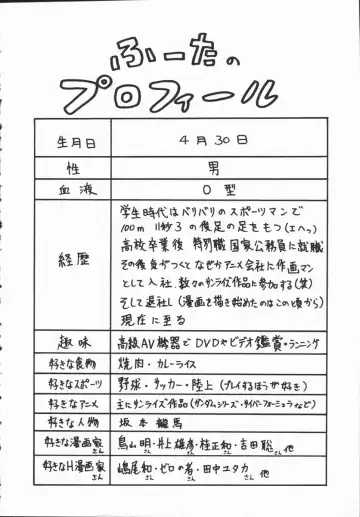 ふーたの
プロフィール
生月日 4月30日
性 男
血液 O型
経歴
学生時代はバリバリのスポーツマンで
100m 11秒3の俊足の足をもつ(エヘッ)
高校卒業後 特別職国家公務員に就職
その後気がつくとなぜかアニメ会社に作画マン
として入社、数々のサンライズ作品に参加する(笑)
そして退社し(漫画を描き始めたのはこの頃から)
現在に至る
趣味 高級AV機器でDVDやビデオ鑑賞・ランニング
好きな食物 焼肉・カレーライス
好きなスポーツ 野球・サッカー・陸上(プレイするほうが好き)
好きなアニメ 主にサンライズ作品(ガンダムシリーズ・サイバーフォーミュラなど)
好きな人物 坂本龍馬
好きな漫画家さん 鳥山明さん・井上雄彦さん・桂正和さん・吉田聡さん 他
好きなH漫画家さん 嶋尾和さん・ゼロの者さん・田中ユタカさん 他